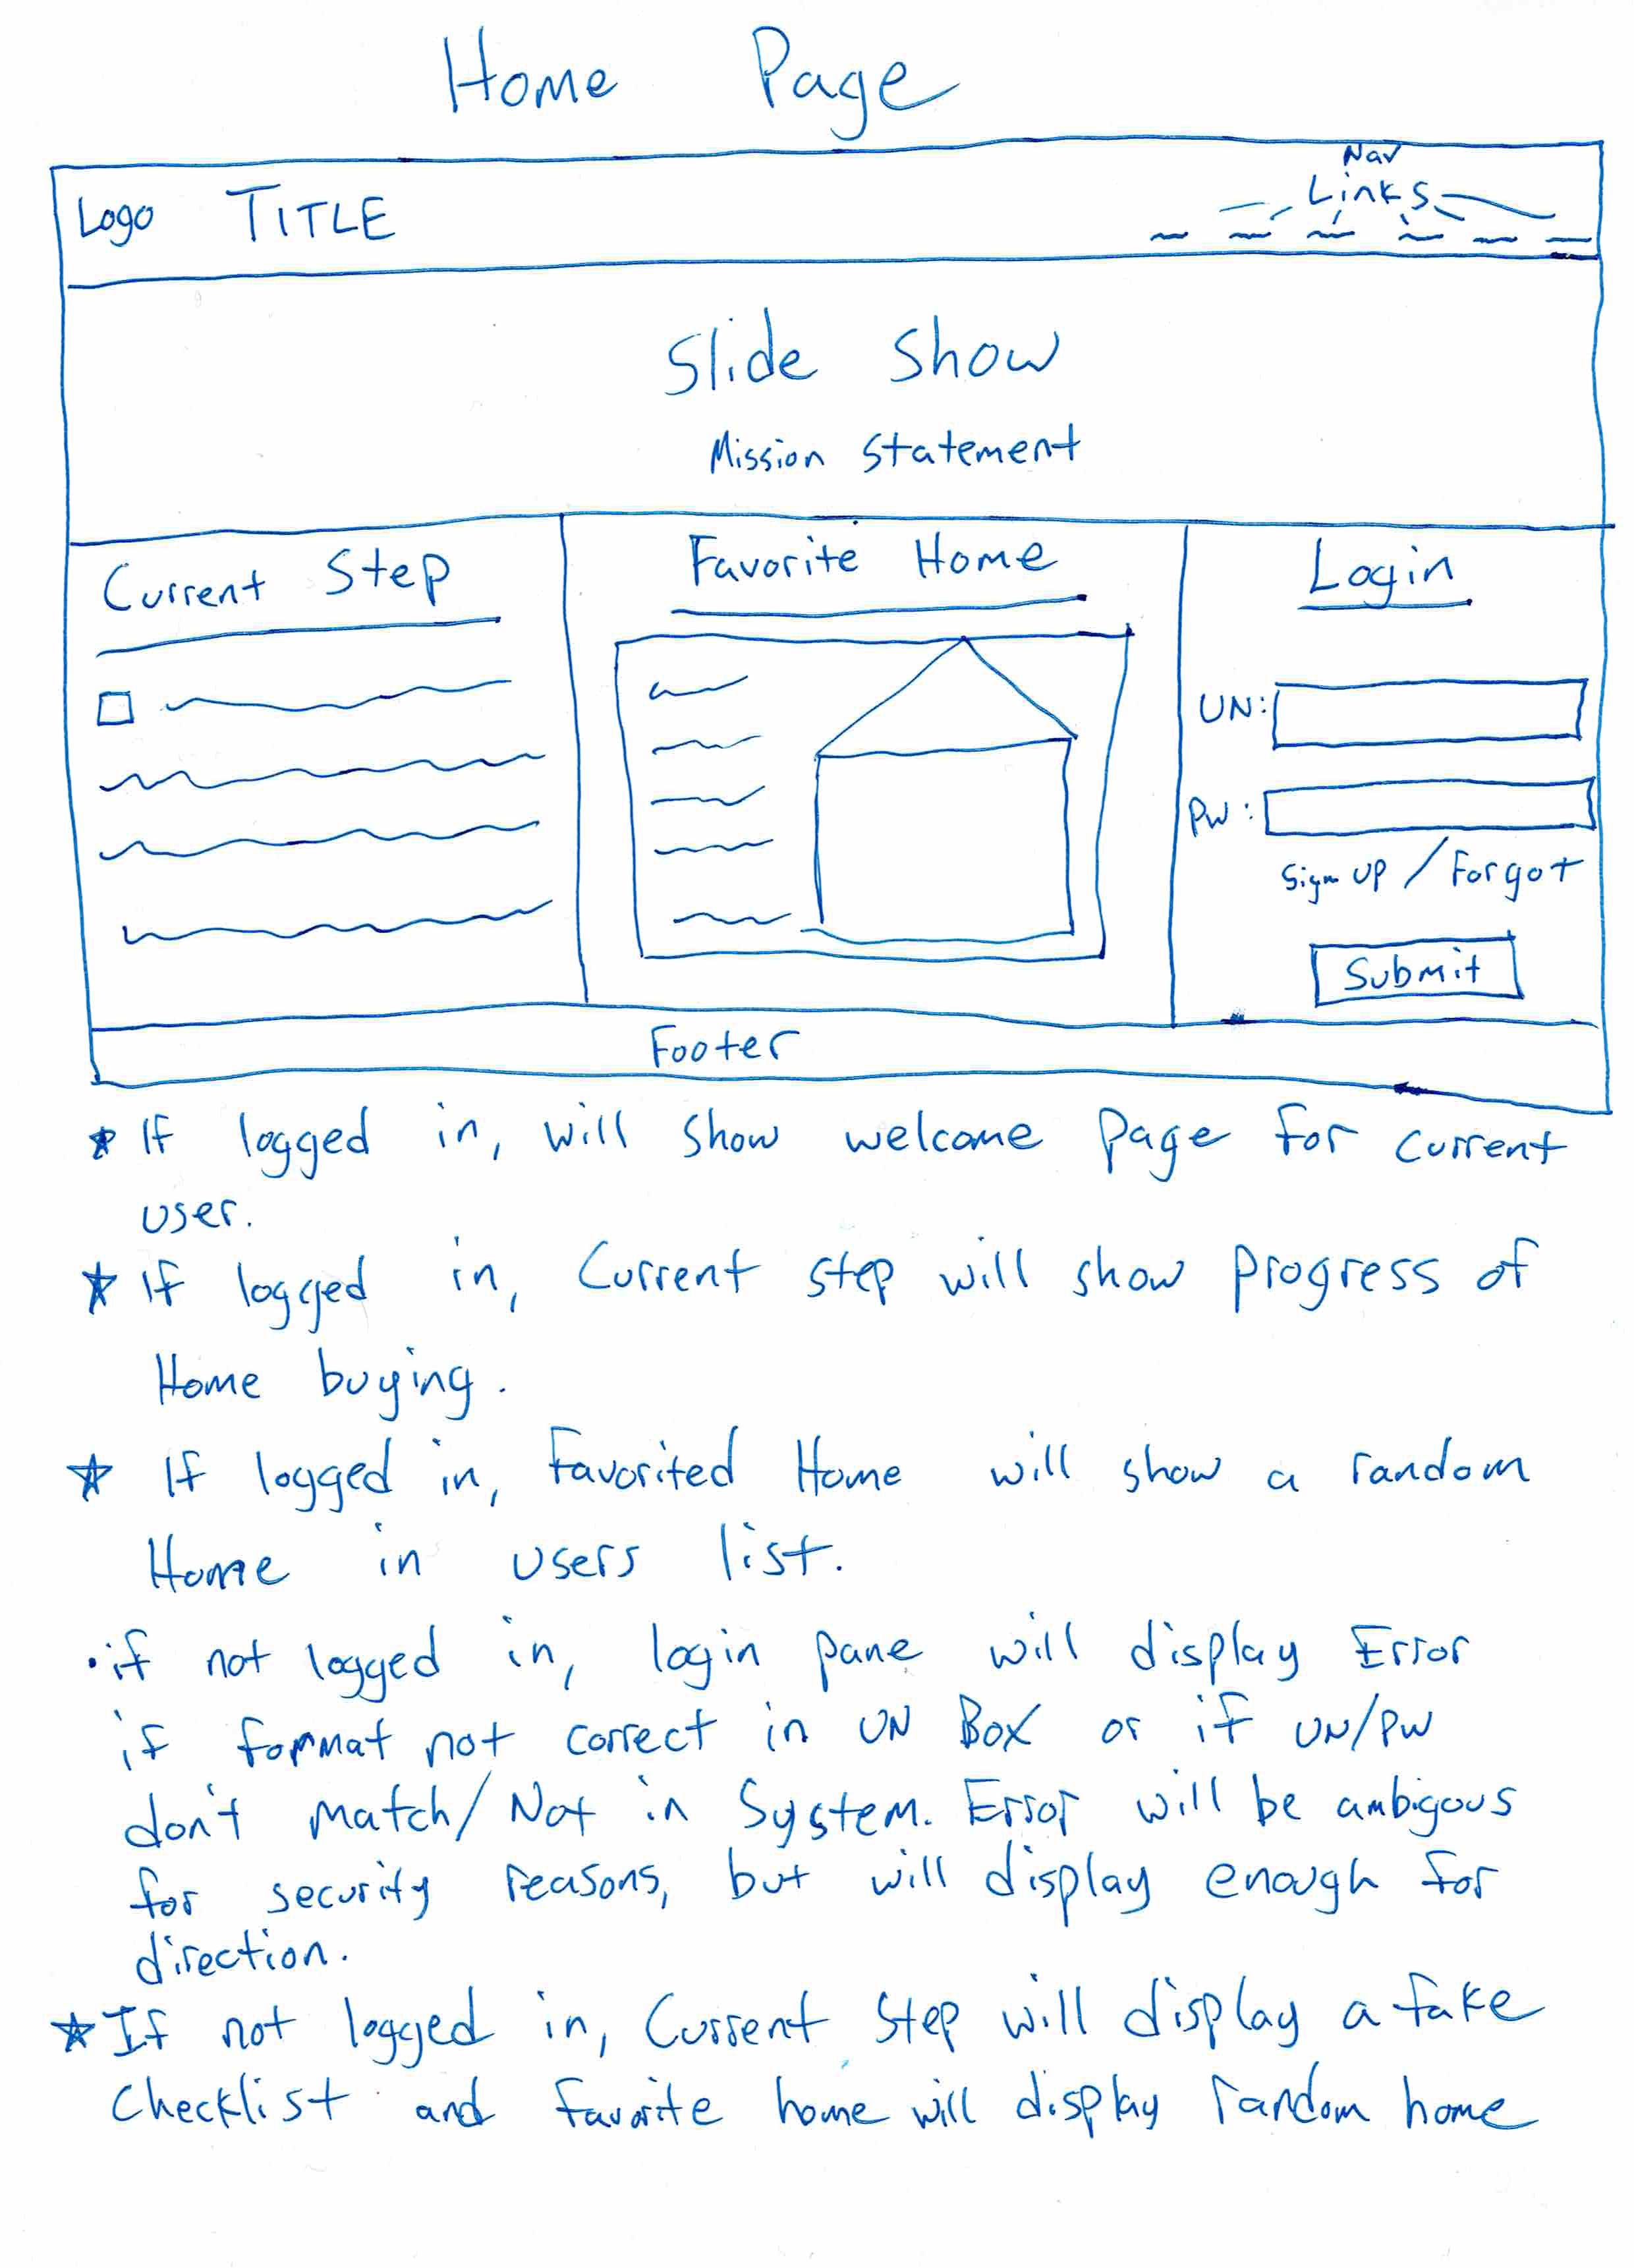 Home Page
Nav
Logo TITLE Links
Slide Show
Mission Statement
Current Step
Favorite Home
Login
UN:
PW:
Sign up / Forgot
Submit
Footer
* If logged in, will show welcome page for current
user.
* If logged in, Current step will show progress of
Home buying.
* If logged in, Favorited Home will show a random
Home in users list.
• if not logged in, login pane will display Error
if format not correct in UN Box or if UN/PW
don't match/Not in System. Error will be ambigous
for security reasons, but will display enough for
direction.
* If not logged in, Current Step will display a fake
Checklist and favorite home will display random home